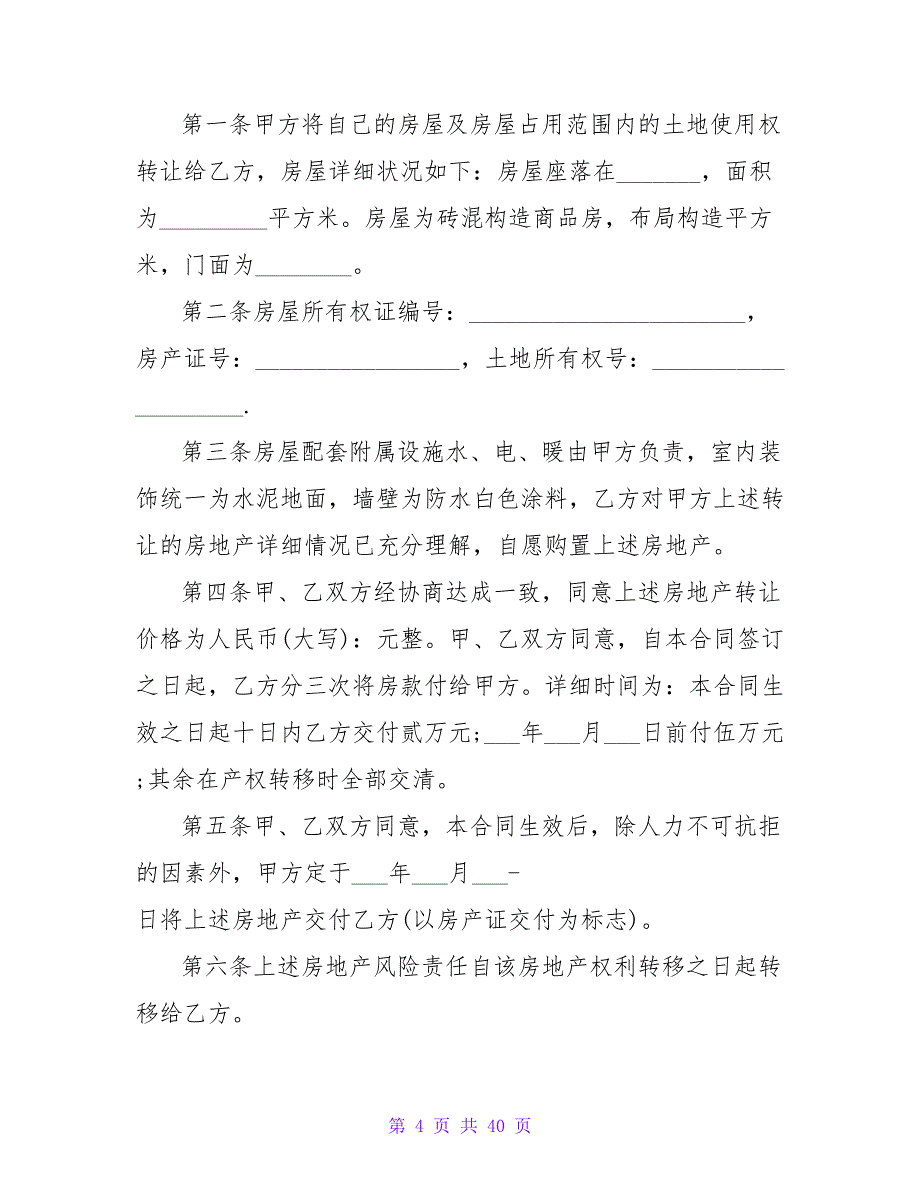 第一条甲方将自己的房屋及房屋占用范围内的土地使用权
转让给乙方，房屋详细状况如下：房屋座落在_______，面积
为_________平方米。房屋为砖混构造商品房，布局构造平方
米，门面为________。
第二条房屋所有权证编号：_______________________，
房产证号：_________________，土地所有权号：___________
_________.
第三条房屋配套附属设施水、电、暖由甲方负责，室内装
饰统一为水泥地面，墙壁为防水白色涂料，乙方对甲方上述转
让的房地产详细情况已充分理解，自愿购置上述房地产。
第四条甲、乙双方经协商达成一致，同意上述房地产转让
价格为人民币(大写)：元整。甲、乙双方同意，自本合同签订
之日起，乙方分三次将房款付给甲方。详细时间为：本合同生
效之日起十日内乙方交付贰万元;___年___月___日前付伍万元
;其余在产权转移时全部交清。
第五条甲、乙双方同意，本合同生效后，除人力不可抗拒
的因素外，甲方定于___年___月___-
日将上述房地产交付乙方(以房产证交付为标志)。
第六条上述房地产风险责任自该房地产权利转移之日起转
移给乙方。
第 4 页 共 40 页